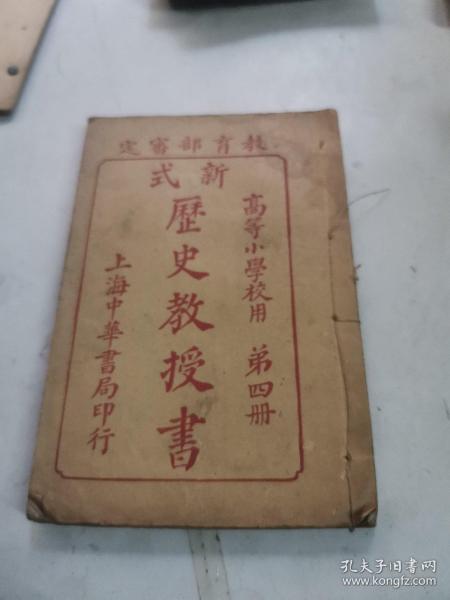 教育部審定
高等小學校用 第四册
新式
歷史教授書
上海中華書局印行
孔夫子旧书网
www.kongfz.com